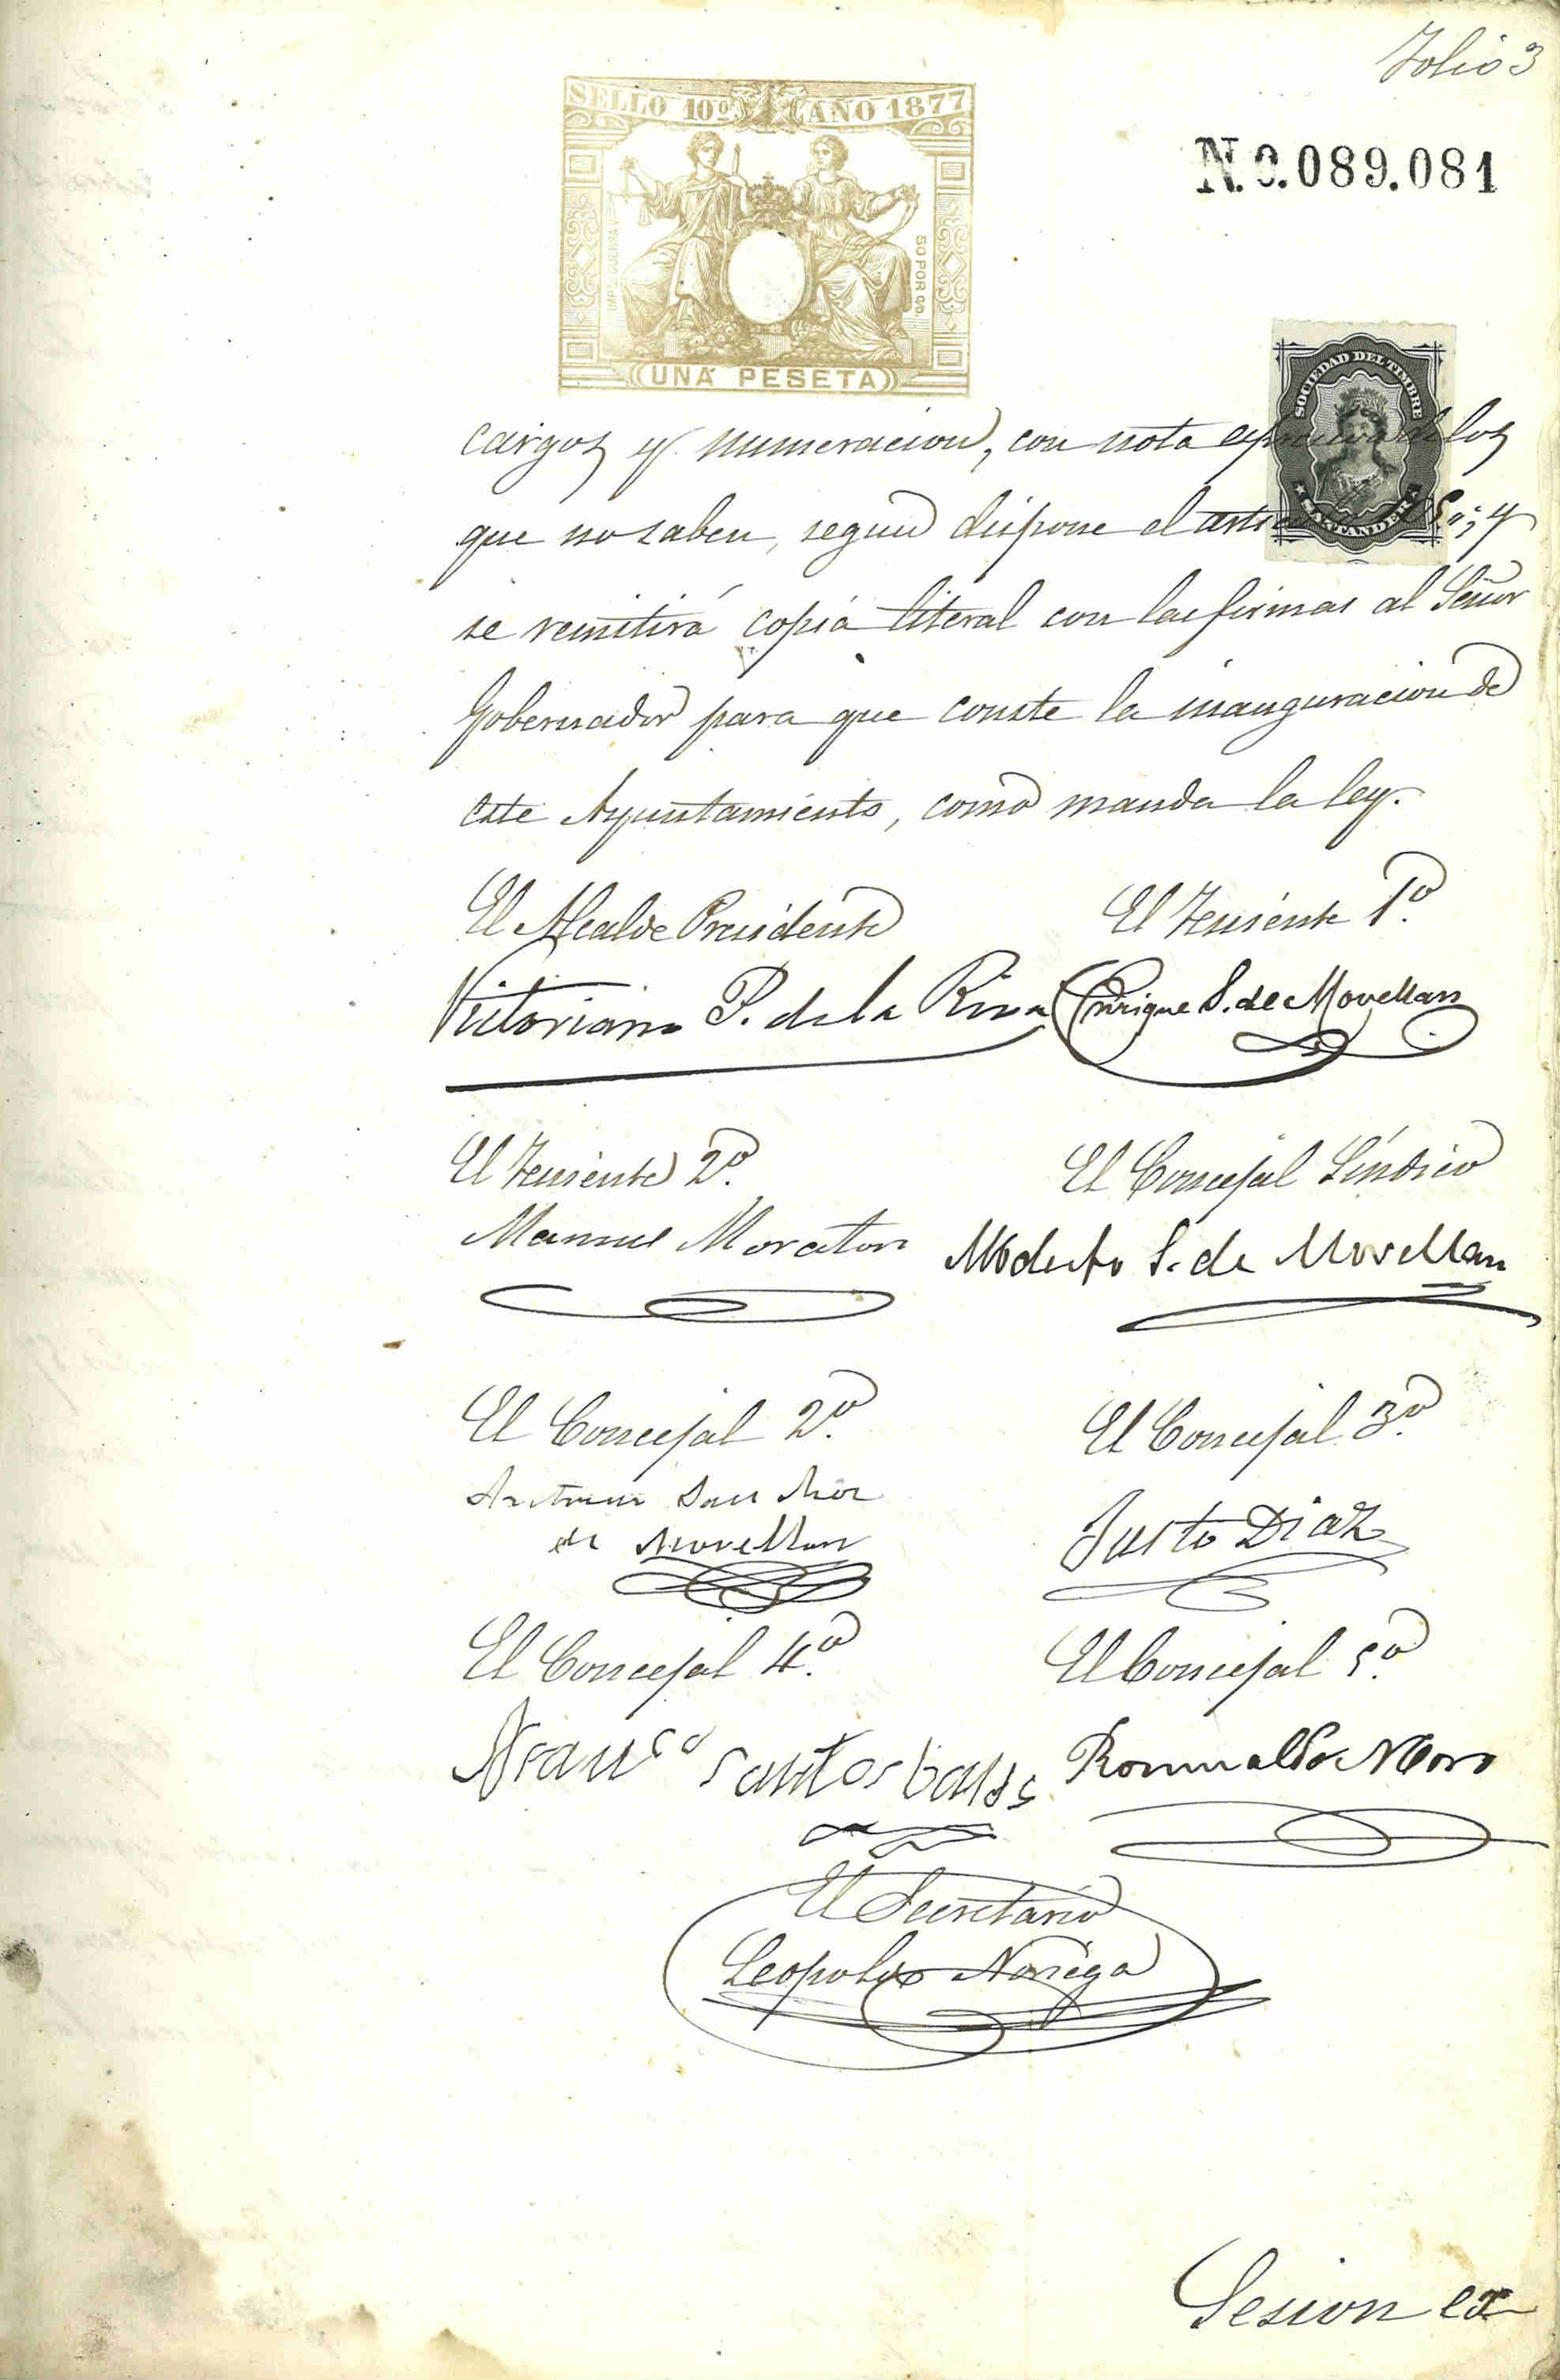 Folio 3
SELLO 10º AÑO 1877
N.0.089.081
IMP. GUERRA
50 POR %
UNA PESETA
SOCIEDAD DEL TIMBRE
SANTANDER
cargos y numeracion, con nota de los
que no saben, segun dispone el y
se remitirá copia literal con las firmas al Señor
Gobernador para que conste la inauguracion de
este Ayuntamiento, como manda la ley.
El Alcalde Presidente
El Teniente 1º.
Victoriano P. de la Riva
Enrique S. de Movellan
El Teniente 2º.
El Concejal Síndico
Manuel Moraton
Modesto S. de Movellan
El Concejal 2º.
El Concejal 3º.
Antonio Sanchez
de Movellan
Justo Diaz
El Concejal 4º.
El Concejal 5º.
Franco Santos
Romualdo Moro
El Secretario
Leopoldo Noriega
Sesion ex